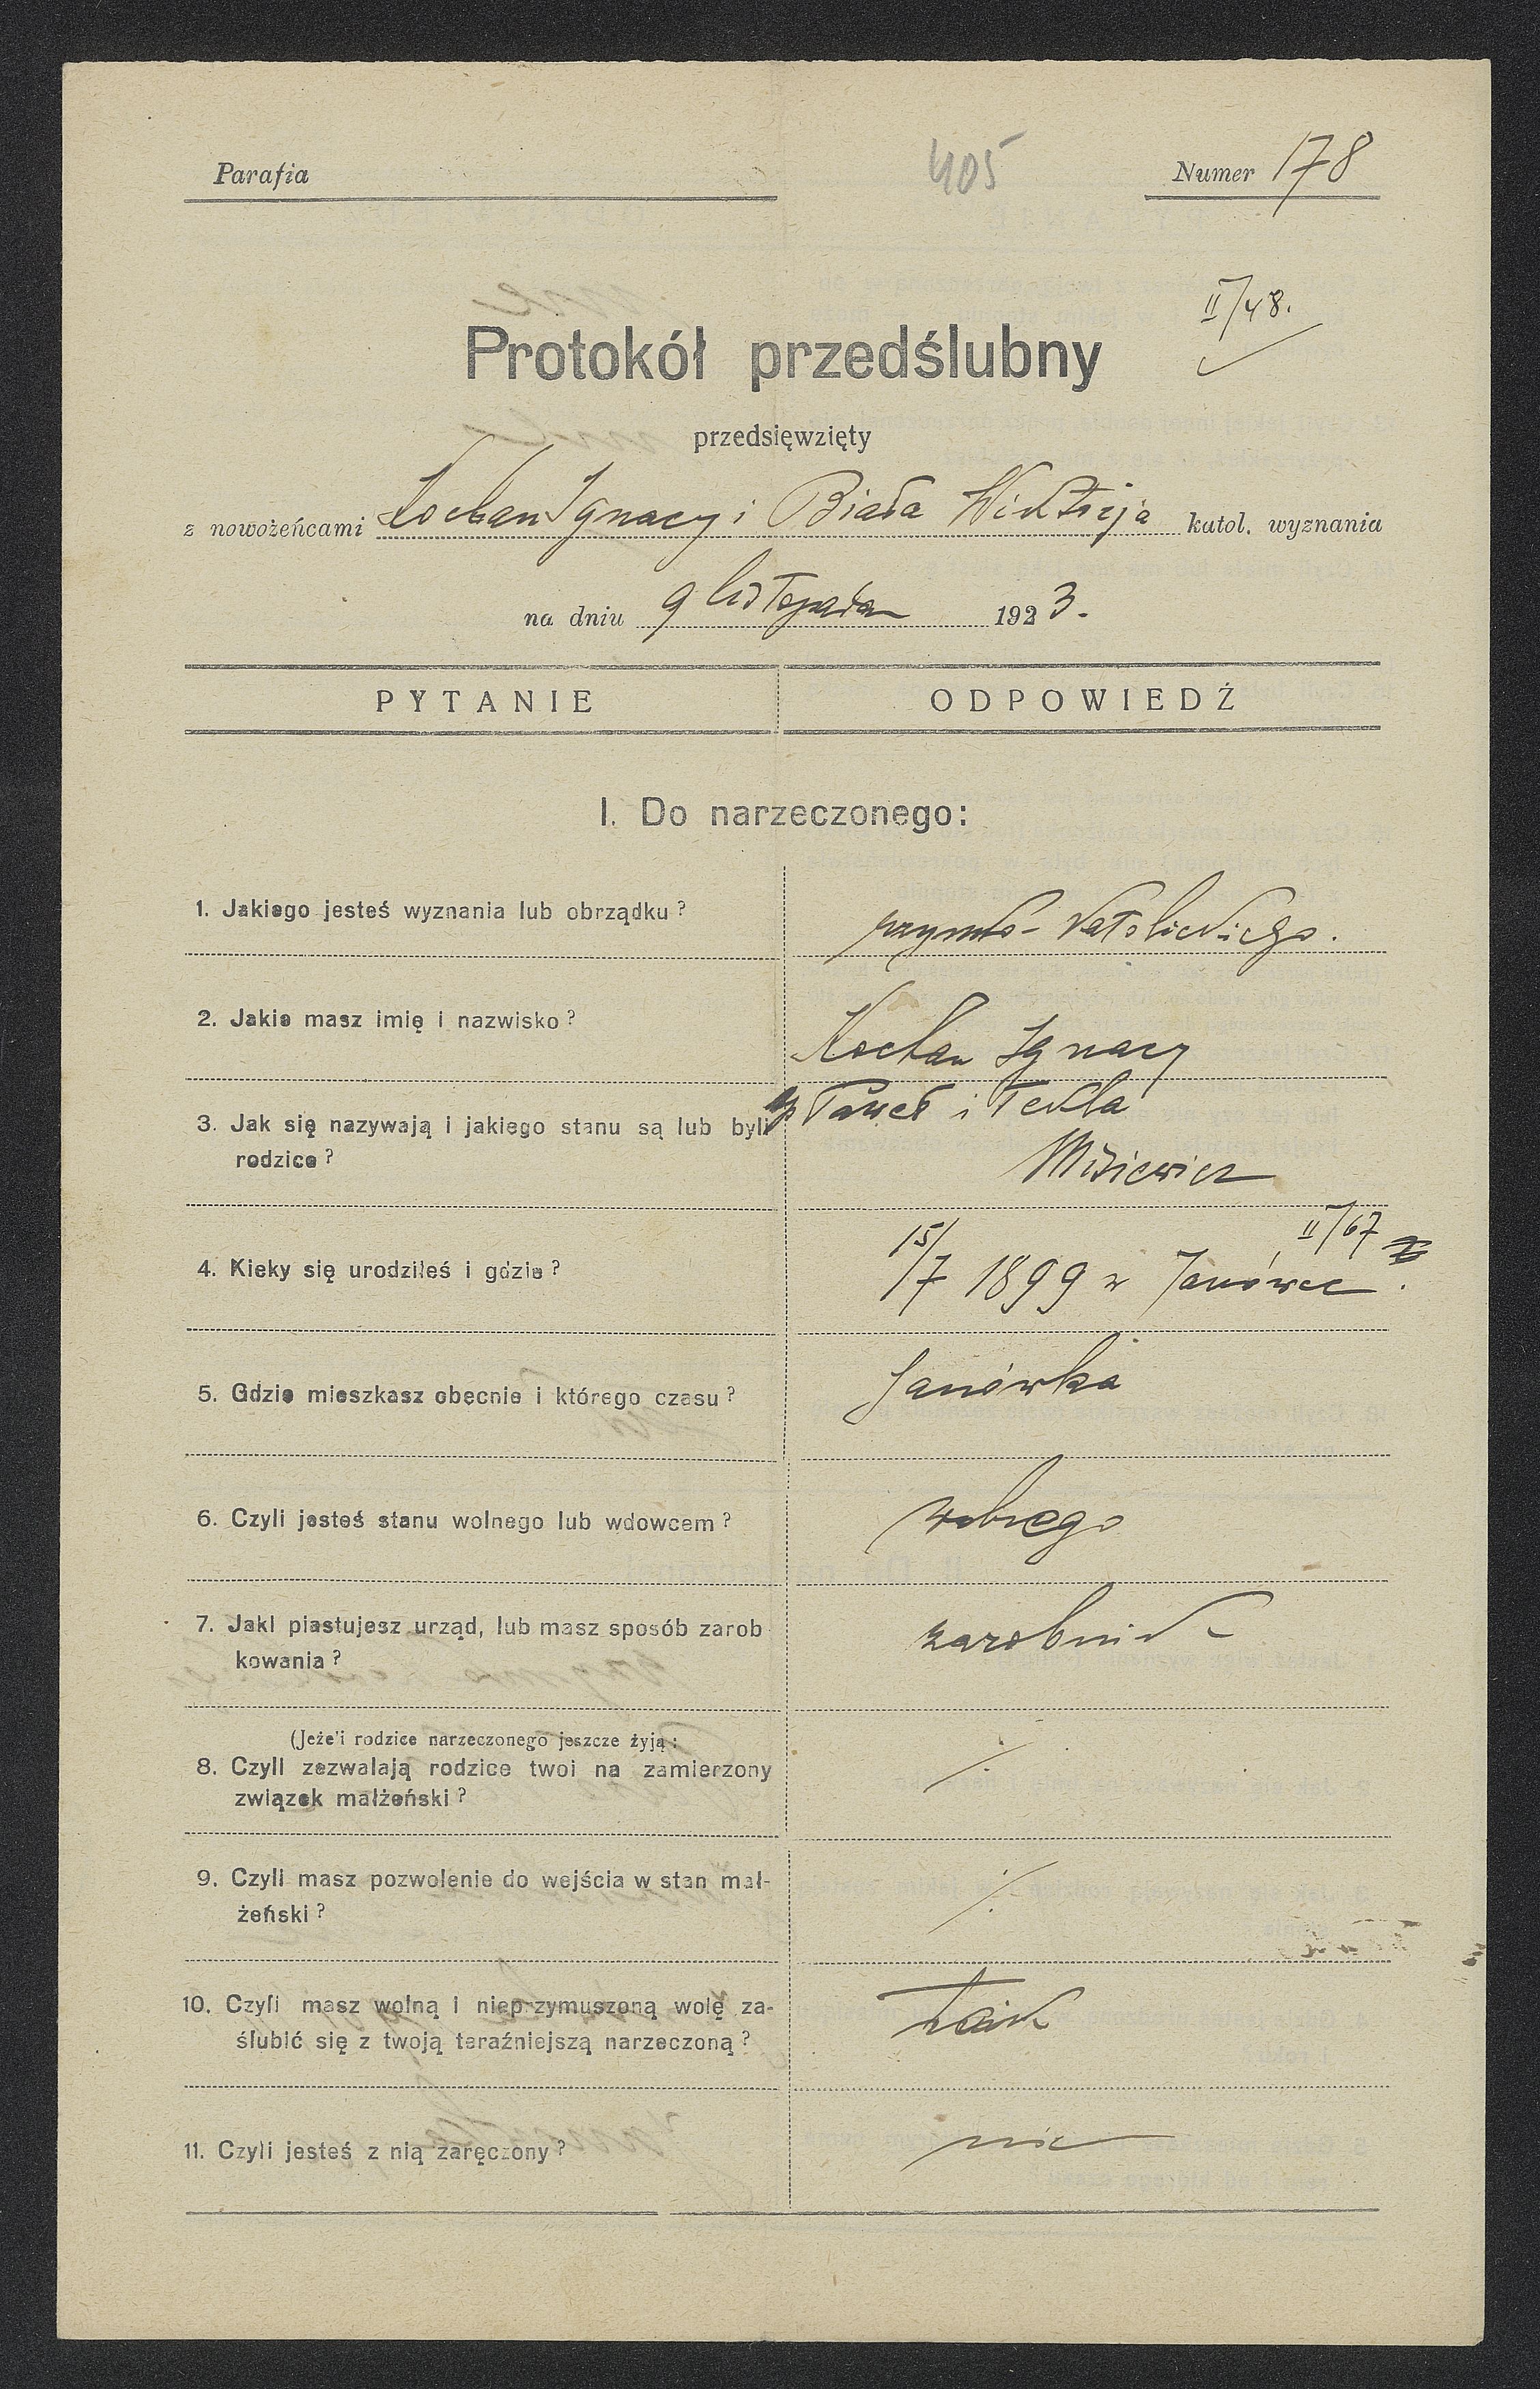 Parafia
405
Numer 178
II/48.
Protokół przedślubny
przedsięwzięty
z nowożeńcami Kochan Ignacy i Biała Wiktorja katol. wyznania
na dniu 9 listopada 1923.
PYTANIE
ODPOWIEDŹ
I. Do narzeczonego:
1. Jakiego jesteś wyznania lub obrządku?
rzymsko-katolickiego.
2. Jakie masz imię i nazwisko?
Kochan Ignacy
3. Jak się nazywają i jakiego stanu są lub byli
rodzice?
Paweł i Tekla
Misiewicz
4. Kieky się urodziłeś i gdzie?
II/67
15/7 1899 w Janówce.
5. Gdzie mieszkasz obecnie i którego czasu?
Janówka
6. Czyli jesteś stanu wolnego lub wdowcem?
wolnego
7. Jaki piastujesz urząd, lub masz sposób zarob
kowania?
zarobnik
(Jeże'i rodzice narzeczonego jeszcze żyją:
8. Czyli zezwalają rodzice twoi na zamierzony
związek małżeński?
·/·
9. Czyli masz pozwolenie do wejścia w stan mał-
żeński?
·/·
10. Czyli masz wolną i nieprzymuszoną wolę za-
ślubić się z twoją teraźniejszą narzeczoną?
tak
11. Czyli jesteś z nią zaręczony?
nie